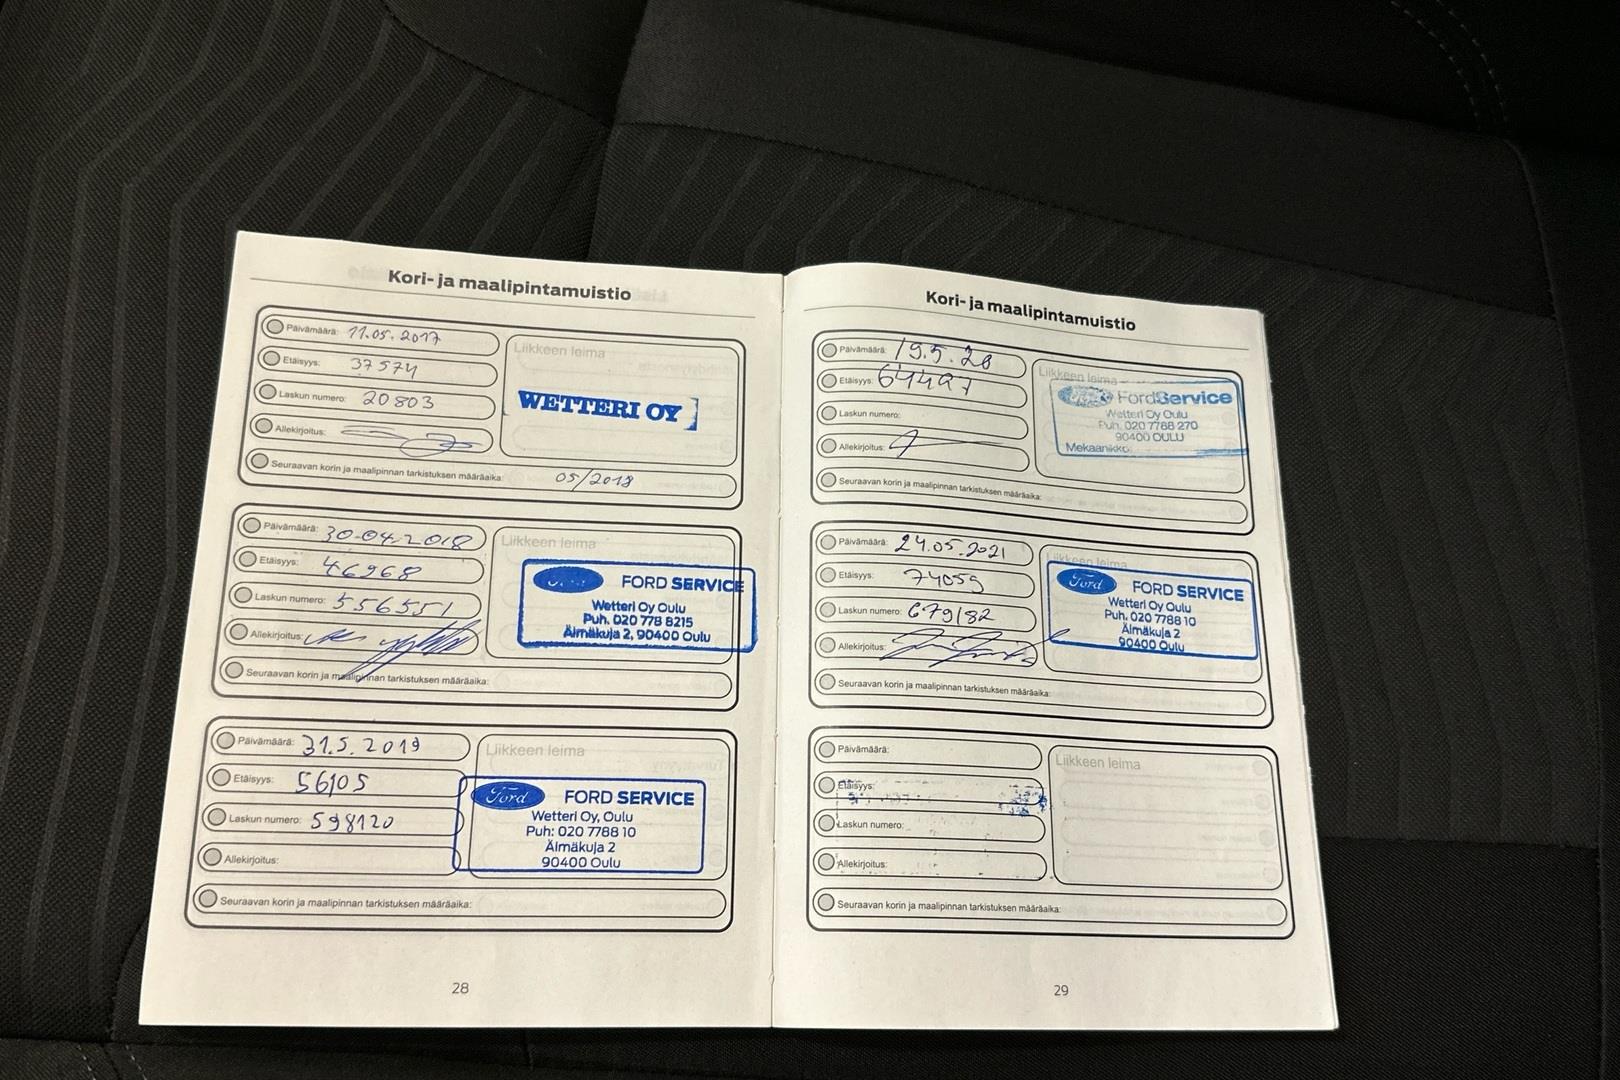 Kori- ja maalipintamuistio
Päivämäärä: 11.05.2017
Etäisyys: 37574
Laskun numero: 20803
Allekirjoitus:
Seuraavan korin ja maalipinnan tarkistuksen määräaika: 05/2018
Liikkeen leima
WETTERI OY
Päivämäärä: 30.04.2018
Etäisyys: 46968
Laskun numero: 556551
Allekirjoitus:
Seuraavan korin ja maalipinnan tarkistuksen määräaika:
Liikkeen leima
FORD SERVICE
Wetteri Oy Oulu
Puh. 020 778 8215
Älmäkuja 2, 90400 Oulu
Päivämäärä: 31.5.2019
Etäisyys: 56105
Laskun numero: 598120
Allekirjoitus:
Seuraavan korin ja maalipinnan tarkistuksen määräaika:
Liikkeen leima
Ford FORD SERVICE
Wetteri Oy, Oulu
Puh: 020 7788 10
Älmäkuja 2
90400 Oulu
28
Kori- ja maalipintamuistio
Päivämäärä: 19.5.20
Etäisyys: 64497
Laskun numero:
Allekirjoitus:
Seuraavan korin ja maalipinnan tarkistuksen määräaika:
Liikkeen leima
FordService
Wetteri Oy Oulu
Puh. 020 7788 270
90400 OULU
Mekaanikko:
Päivämäärä: 24.05.2021
Etäisyys: 74059
Laskun numero: 679182
Allekirjoitus:
Seuraavan korin ja maalipinnan tarkistuksen määräaika:
Liikkeen leima
Ford FORD SERVICE
Wetteri Oy Oulu
Puh: 020 7788 10
Älmäkuja 2
90400 Oulu
Päivämäärä:
Etäisyys:
Laskun numero:
Allekirjoitus:
Seuraavan korin ja maalipinnan tarkistuksen määräaika:
Liikkeen leima
29